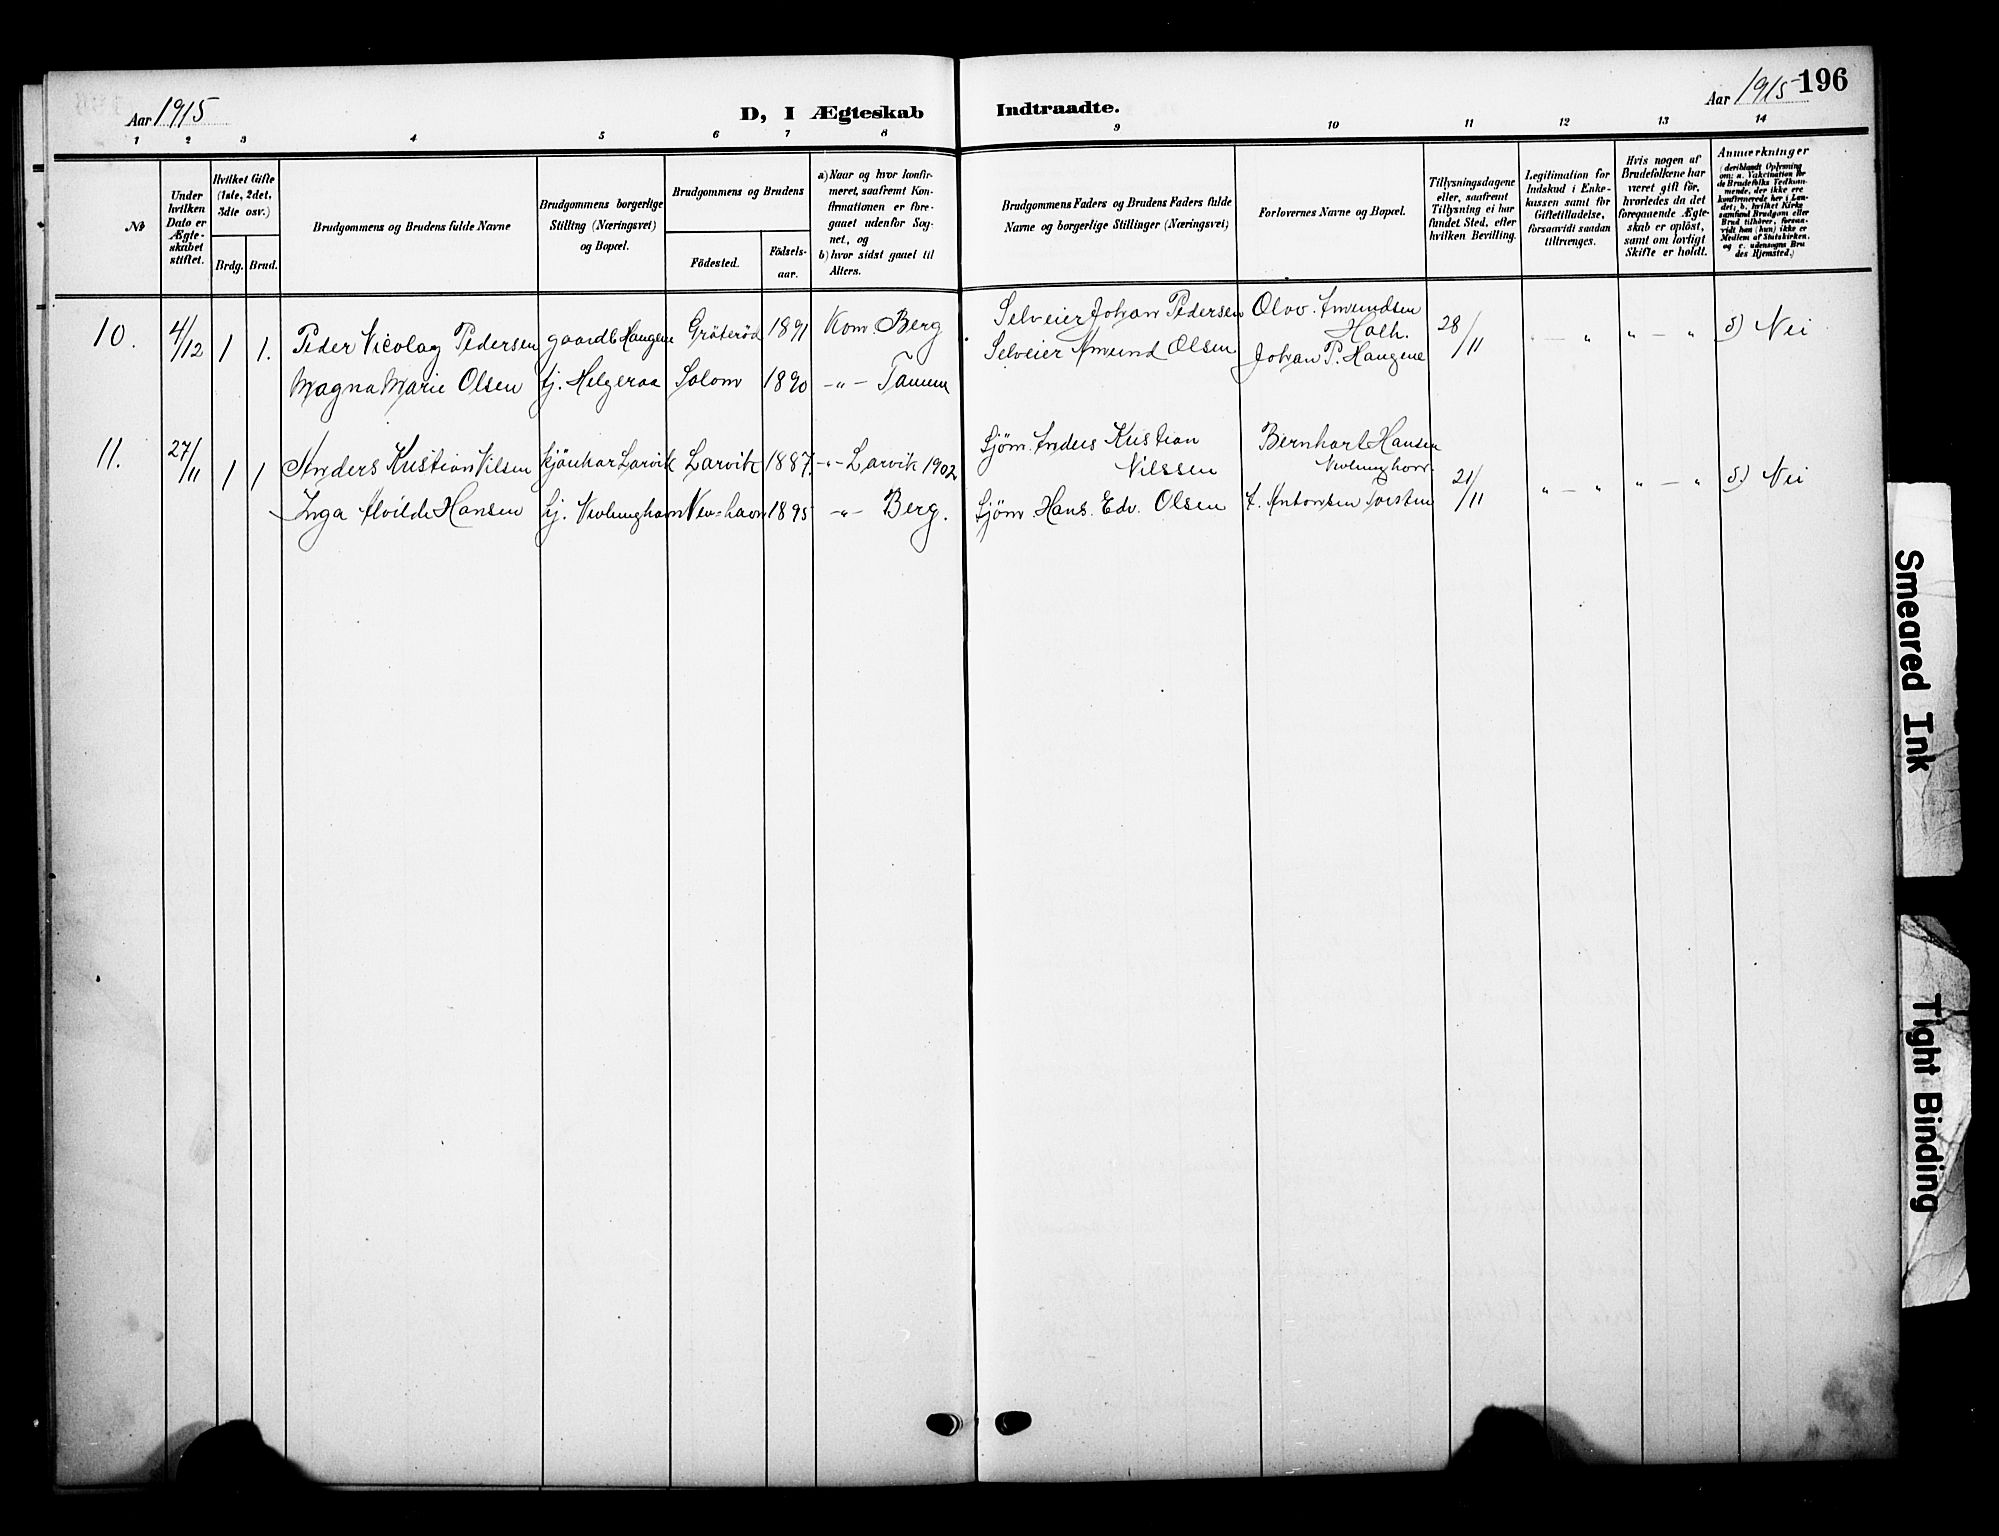 Aar 1915
D, I Ægteskab Indtraadte.
Aar 1915
196
1 2 3 4 5 6 7 8 9 10 11 12 13 14
№
Under hvilken Dato er Ægteskabet stiftet.
Hvilket Gifte (1ste, 2det, 3dte osv.)
Brdg. Brud.
Brudgommens og Brudens fulde Navne
Brudgommens borgerlige Stilling (Næringsvei) og Bopæl.
Brudgommens og Brudens
Födested.
Födselsaar.
a) Naar og hvor konfirmeret, saafremt Konfirmationen er foregaaet udenfor Sognet, og
b) hvor sidst gaaet til Alters.
Brudgommens Faders og Brudens Faders fulde Navne og borgerlige Stillinger (Næringsvei)
Forlovernes Navne og Bopæl.
Tillysningsdagene eller, saafremt Tillysning ei har fundet Sted, efter hvilken Bevilling.
Legitimation for Indskud i Enkekassen samt for Giftetilladelse, forsaavidt saadan tiltrænges.
Hvis nogen af Brudefolkene har været gift för, hvorledes da det foregaaende Ægteskab er oplöst, samt om lovligt Skifte er holdt.
Anmærkninger (deriblandt Oplysning om: a. Vakcination for de Brudefolks Vedkommende, der ikke ere konfirmerede her i Landet; b. hvilket Kirkesamfund Brudgom eller Brud tilhörer, forsaavidt han (hun) ikke er Medlem af Statskirken, og c. udensogns Brudes Hjemsted.)
10. 4/12 1 1. Peder Nicolay Pedersen gaardb Haugene Gräteröd 1891 Kom. Berg Selveier Johan Pedersen Olav Amundsen Holh. 28/11 " — " " — " d) Nei
Magna Marie Olsen tj. Helgeraa Solom 1890 -"- Tanum Selveier Amund Olsen Johan P. Haugene
11. 27/11 1 1 Anders Kristian Nilsen Larvik Larvik 1887. -"- Larvik 1902 Sjöm. Anders Kristian Nilssen Bernhart Hansen 21/11 " — " " — " d.) Nei
Inga Alvilde Hansen tj. Nevlunghavn Nev=havn 1895 -"- Berg. Sjöm. Hans. Edv. Olsen Antonsen Torsten
Smeared Ink
Tight Binding